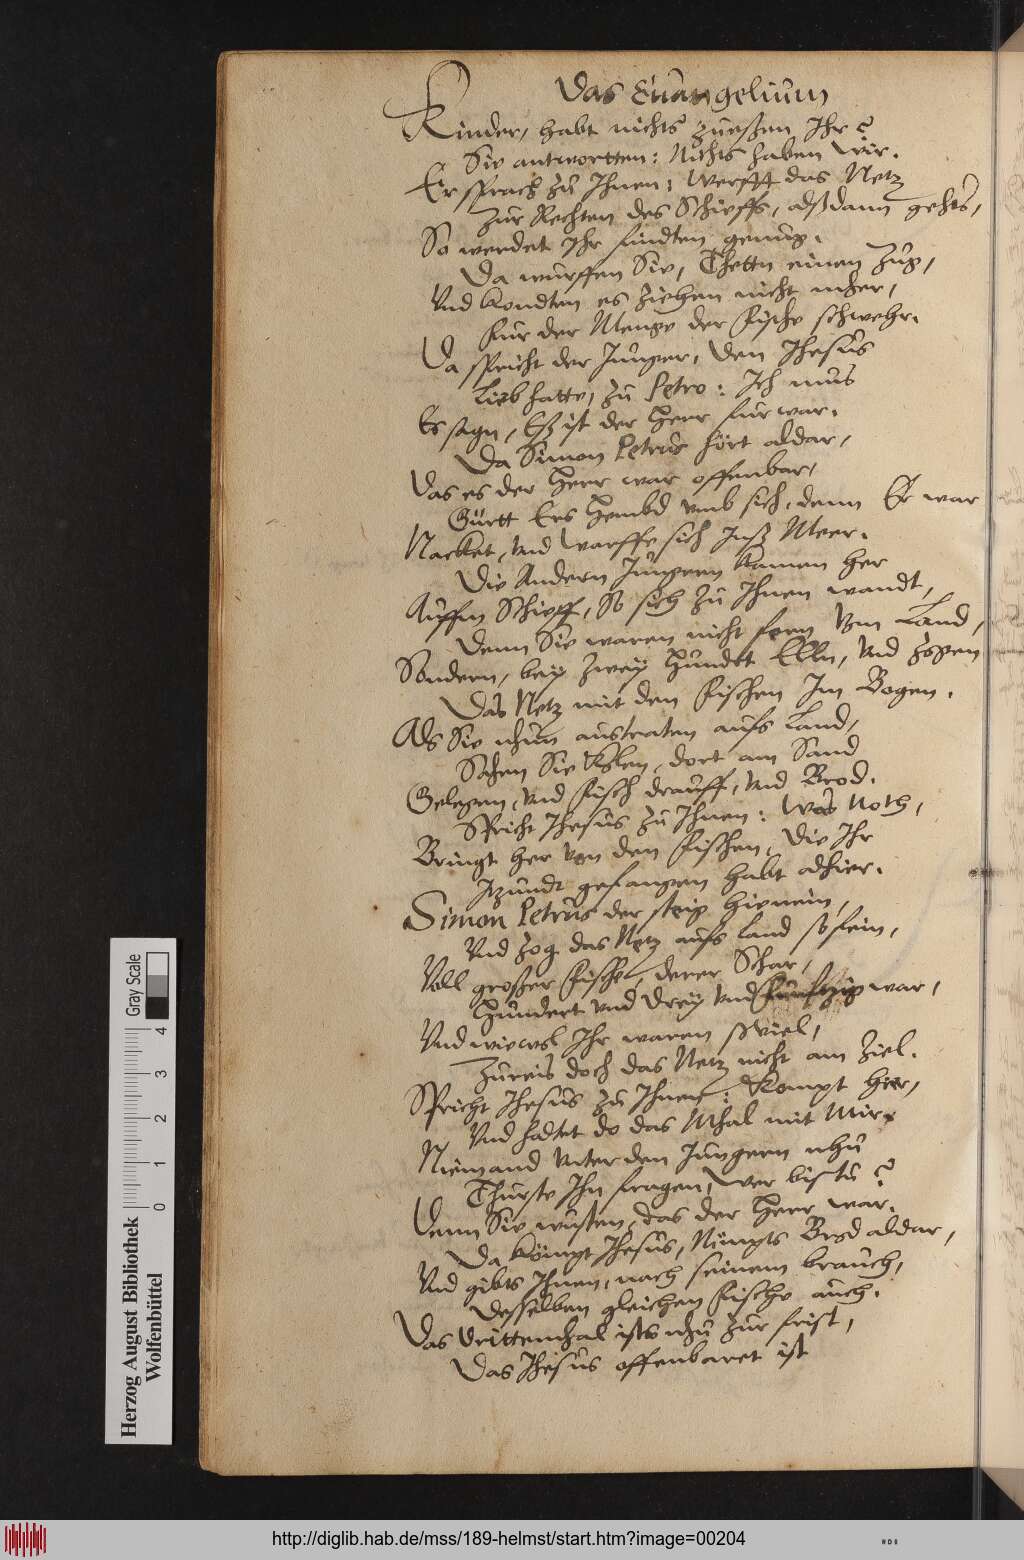 Das Euangelium
Kinder, habt nichts zueßen Ihr?
Sie antwortten: Nichts haben wir.
Er sprach zu Ihnen: Werfft das Netz
Zur Rechten des Schieffs, alßdann gehts,
So werdet Ihr findten genug.
Da wurffen Sie, Thettn einen Zug,
Vnd kondten es ziehen nicht mher,
Fur der Menge der Fische schwehr.
Da spricht der Junger, den Jhesus
Lieb hatte, zu Petro: Ich mus
Es sagn, Eß ist der Herr furwar.
Da Simon Petrus hört aldar,
Das es der Herr war offenbar,
Gürtt Ers Hembd vmb sich, denn Er war
Nacket, Vnd warffe sich Inß Meer.
Die Andern Jüngern kamen her
Auffm Schieff, So sich zu Ihnen wandt,
Denn Sie waren nicht fern Vom Land,
Sondern, bey zwey Hundtt Elln, Vnd zogen
Das Netz mit den Fischen Im Bogen.
Als Sie nhun austraten aufs Land,
Sahen Sie Kolen, dort am Sand
Gelegen, Vnd Fisch drauff, Vnd Brod.
Spricht Jhesus zu Ihnen: Was Noth,
Bringt her von den Fischen, Die Ihr
Itzundt gefangen habt alhier.
Simon Petrus der steig hienein,
Vnd zog das Netz aufs Land so fein,
Voll großer Fische, derer Schar,
Hundert vnd Drey vnd Funftzig war,
Vnd wiewol Ihr waren souiel,
Zureis doch das Netz nicht am Ziel.
Spricht Jhesus zu Ihnen: Kompt hier,
Vnd haltet do das Mhal mit Mir.
Niemand Vnter den Jungern nhu
Thurste Ihn fragen, Wer bistu?
Denn Sie wusten, das der Herr war.
Da kömpt Jhesus, Nimpts Brod aldar,
Vnd gibts Ihnen, nach seinem brauch,
Desselben gleichen Fische auch.
Das Drittemhal ists nhu zur frist,
Das Jhesus offenbaret ist
Herzog August Bibliothek
Wolfenbüttel
0 1 2 3 4
Gray Scale
http://diglib.hab.de/mss/189-helmst/start.htm?image=00204